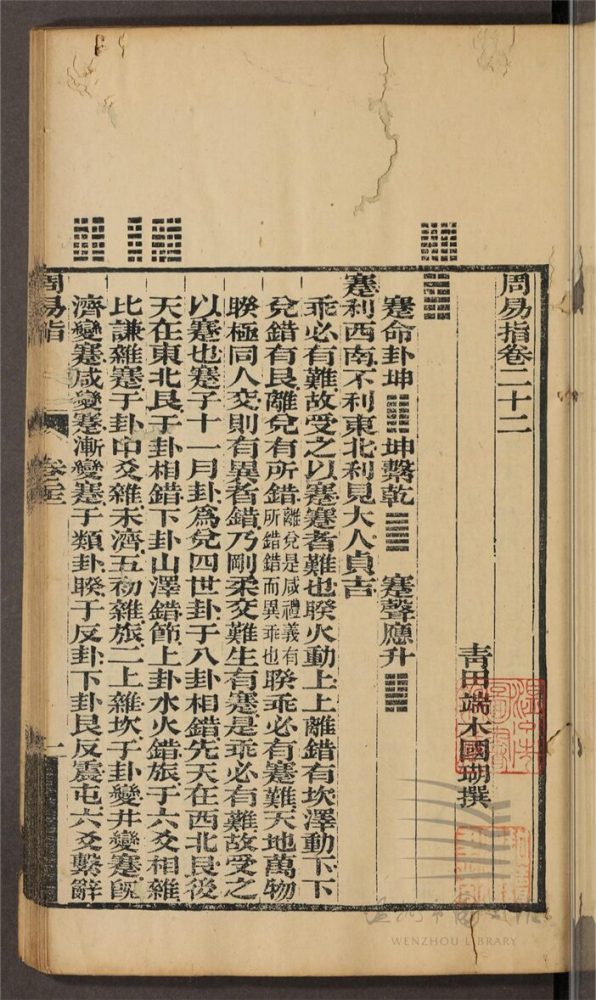 周易指卷二十二
青田端木國瑚撰
蹇命卦坤䷁坤繫乾䷀ 蹇聲應升䷭
蹇利西南不利東北利見大人貞吉
乖必有難故受之以蹇蹇者難也睽火動上上離錯有坎澤動下下
兌錯有艮離兌有所錯離兌是咸禮義有所錯錯而異乖也睽乖必有蹇難天地萬物
睽極同人交則有異者錯乃剛柔交難生有蹇是乖必有難故受之
以蹇也蹇子十一月卦爲兌四世卦于八卦相錯先天在西北艮後
天在東北艮于卦相錯下卦山澤錯節上卦水火錯旅于六爻相雜
比謙雜蹇于卦中爻雜未濟五初雜旅二上雜坎于卦變井變蹇旣
濟變蹇咸變蹇漸變蹇于類卦睽于反卦下卦艮反震屯六爻繫辭
周易指
卷二十二
一
WENZHOU LIBRARY